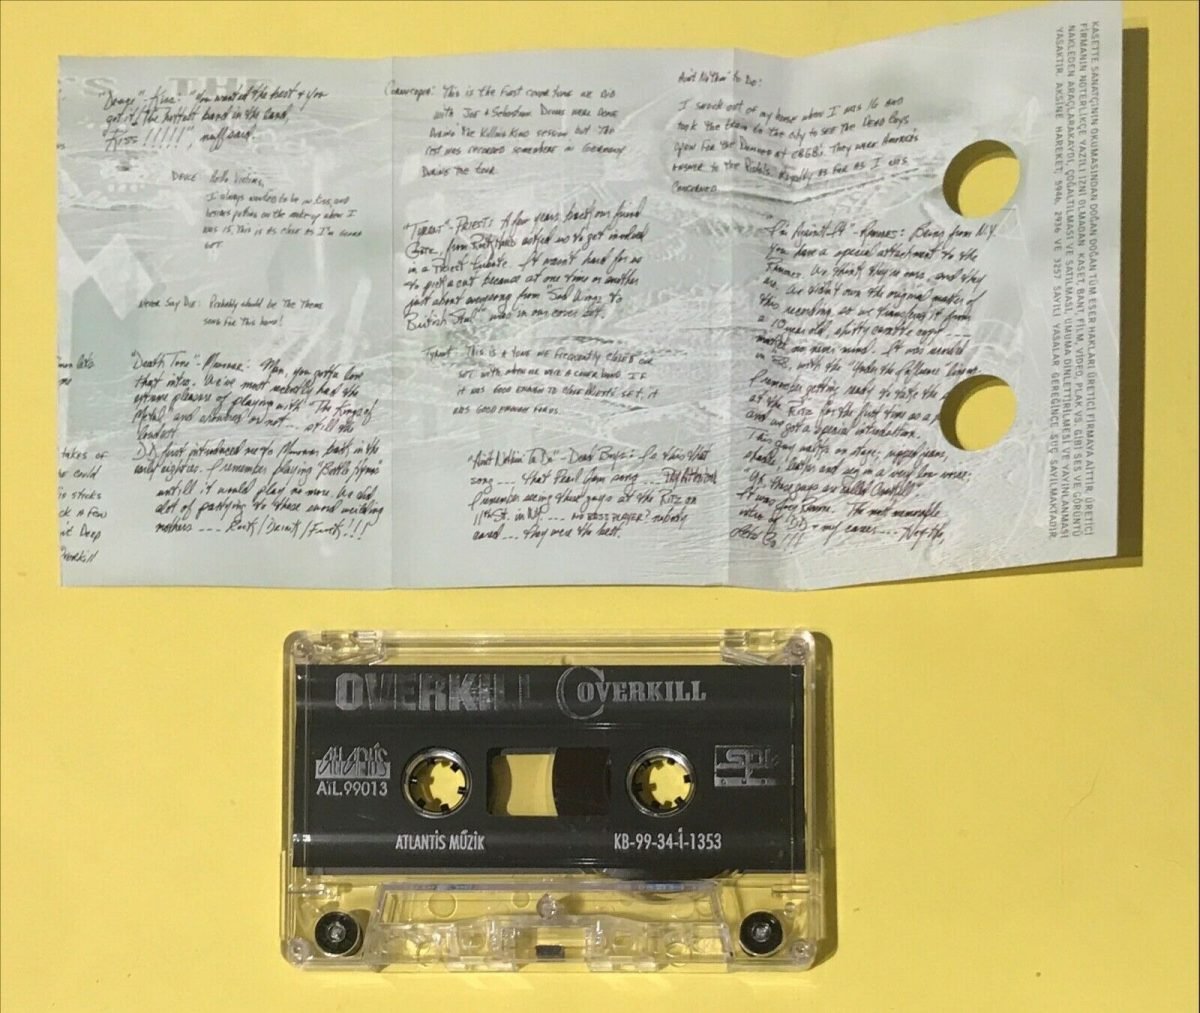 "Deuce" - Kiss: "You wanted the best & you
got it! The hottest band in the land,
Kiss !!!!!", nuff said.
DEUCE: Hello Victims,
I always wanted to be in Kiss, and
putting on the make-up when I
was 15, this is as close as I'm gonna
get.
Never Say Die: Probably should be the theme
song for this band!
"Death Tone" - Manowar: Man, you gotta love
that intro. We've most recently had the
extreme pleasure of playing with "The Kings of
Metal" and or not --- still the
loudest.
D.D. first introduced me to Manowar back in the
early eighties. I remember playing "Battle Hymns"
untill it would play no more. We did
alot of partying to those sword weilding
mothers ---- Rock/Drink/Fuck!!!
takes of
could
sticks
a few
Deep
Overkill
Cornucopia: This is the first cover tune we did
with Joe & Sebastian. Drums were done
during the Killing Kind session but the
rest was recorded somewhere in Germany
during the tour.
"Tyrant" - Priest: A few years back our friend
Götz, from Rock Hard asked us to get involved
in a Priest tribute. It wasn't hard for us
to pick a cut because at one time or another
just about everything from "Sad Wings to
British Steel" was in our cover set.
Tyrant: This is a tune we frequently closed our
set with when we were a cover band. If
it was good enough to close Priests set, it
was good enough for us.
"Ain't Nothin To Do" - Dead Boys: Is this that
song ---- that Pearl Jam song ---- Pay Attention!
I remember seeing these guys at the Ritz on
11th St. in N.Y. ---- NO BASS PLAYER? nobody
cared --- they were the best.
Ain't Nothin' to Do:
I snuck out of my house when I was 16 and
took the train to the city to see the Dead Boys
open for the Damned at CBGB's. They were America's
answer to the Pistols. Royalty as far as I was
concerned.
"I'm Against It" - Ramones: Being from N.Y.
you have a special attachment to the
Ramones. We think they're ours, and they
are. We didn't own the original master of
this recording, so we transfered it from
a 10 year old, shitty cassette copy ----
no never mind. It was recorded
in, with the "Under the Influence" lineup.
I remember getting ready to take the
at the Ritz for the first time as a
and we got a special introduction.
This guy walks on stage; ripped jeans,
shades, leather and says in a very low voice;
"Yo, these guys are called Overkill",
It was Joey Ramone. The most memorable
DD's & my career ---- Hey Ho,
Lets Go!!!
KASETTE SANATÇININ OKUMASINDAN DOĞAN TÜM ESER HAKLARI ÜRETİCİ FİRMAYA AİTTİR. ÜRETİCİ
FİRMANIN NOTERLİKÇE YAZILI İZNİ OLMADAN KASET, BANT, FİLM, VİDEO, PLAK VS. GİBİ SES VE GÖRÜNTÜ
NAKLEDEN ARAÇLARA KAYDI, ÇOĞALTILMASI VE SATILMASI, UMUMA DİNLETTİRİLMESİ VE YAYINLANMASI
YASAKTIR. AKSİNE HAREKET, 5946, 2936 VE 3257 SAYILI YASALAR GEREĞİNCE SUÇ SAYILMAKTADIR.
OVERKILL OVERKILL
ATLANTIS
AİL.99013
SPV
ATLANTİS MÜZİK
KB-99-34-İ-1353